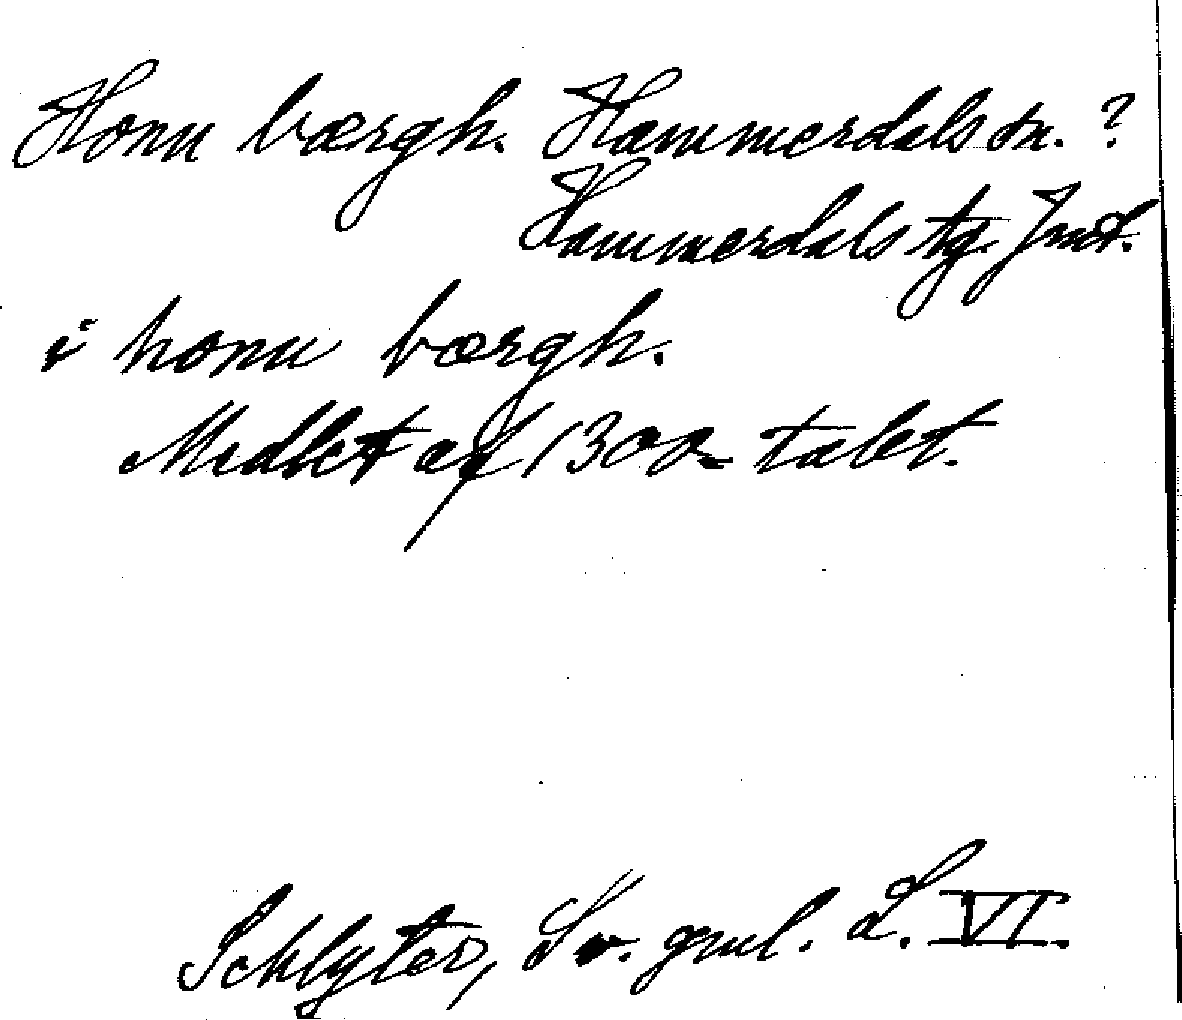 Honu bærgh. Hammerdals sn. ?
Hammerdals tg. Jmt.
i honu bærgh.
Midlet af 1300-talet.
Schlyter, Sv. gml. L. VI.